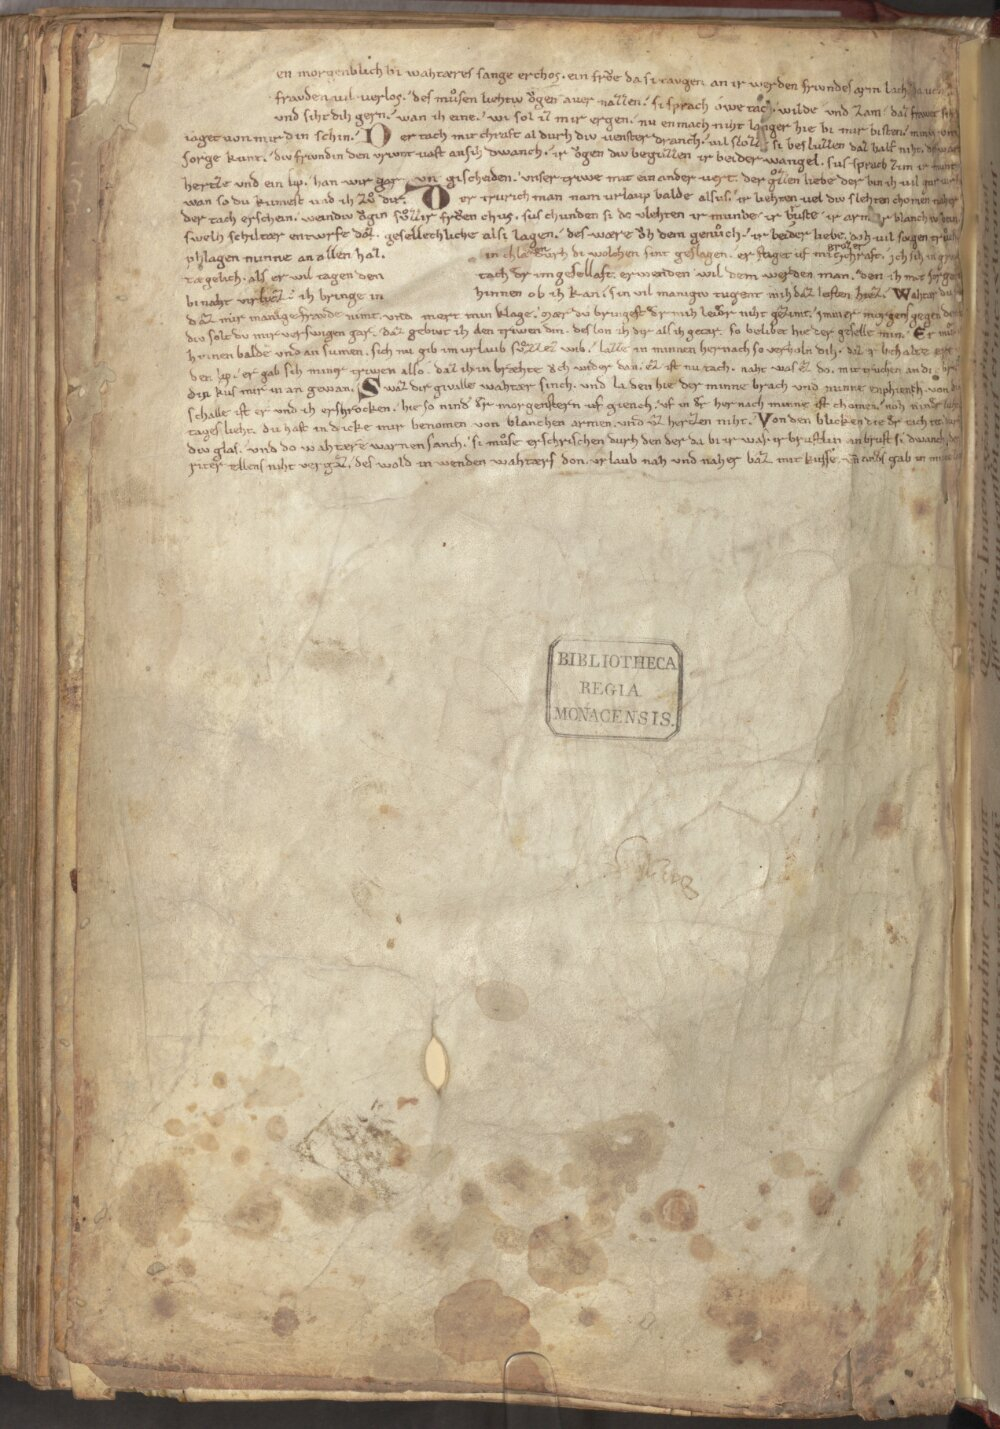 en morgenblich bi wahtæres sange erchos. ein frŏe da si tavgen an ir werden frivndes arm lach. da von
fravden vil verlos. des můsen liehtiv ŏgen aver nazzen. si sprach owe tac. wilde vnd zam daz frewet sih
vnd siht dih gern. wan ih eine. wi sol iz mir ergen. nu enmach niht langer hie bi mir bisten. min vriv
iaget von mir din schin. Der tach mit chraft al durh div venster dranch. vil sloze si besluzzen daz half niht. des wart
sorge kunt. div frivndin den vrivnt vast an sih dwanch. ir ŏgen div beguzzen ir beider wangel. sus sprach zim ir munt
hertze vnd ein lip. han wir gar vn gischeiden. vnser triwe mit ein ander vert. der grŏzen liebe der bin ih vil gar
wan so du kumest vnd ih zŏ dir. Der trurich man nam urlaup balde alsus. ir liehten vel div slehten chomen naher
der tach erschein. weindiv ŏgen sŏzzir frŏen chus. sus chunden si do vlehten ir munde ir bruste ir arm ir blanchiv bein
swelh schiltær entwrfe daz. gesellechliche als si lagen. des wære ŏh dem genůch. ir beider liebe doh vil sorgen trůch
phlagen minne an allen haz. in chlawen durh di wolchen sint geslagen. er stiget uf mit grozer chraft. ich sih in grawen
tægelich als er wil tagen den tach der im gesellaft. erwenden wil dem werden man. den ih mit sorgen
bi naht virliez ih bringe in hinnen ob ih kan. sin vil manigiv tugent mih daz leisten hiez. Wahtær du
daz mir manige fravde nimt. vnd mert min klage. mær du bringest der mih leider niht gezimt. immer morgen gegen dem
div solt du mir verswigen gar. daz gebiut ih den triwen din. des lon ih dir als ih getar. so belibet hie der geselle min. Er můz
hinnen balde vnd an sumen. sich nu gib im urlaub sŏzzez wib. lazze in minnen her nach so verholn dih. daz er behalte ere
den lip. er gab sih miner triwen also. daz ih in bræhte ŏch wider dan. ez ist nu tach. naht was ez do. mit truchen an di brust
din kus mir in an gewan. Swaz dir givalle wahtær sinch. vnd la den hie der minne brah vnd minne enphienh. von din
schalle ist er vnd ih erschrocken. hie so ninder der morgenstern uf giench. uf in der her nach minne ist chomen. noh ninder luhte
tages lieht. du hast in dicke mir benomen von blanchen armen. vnd uz hertzen niht. Von den blicken die der tach tet durh
div glas. vnd do wahtære warnen sanch. si můse erschrichen durh den der da bi ir was. ir brustlin an brust si dwanch. der
riter ellens niht vergaz. des wold in wenden wahtærs don. urlaub nah vnd naher baz mit kusse vn anders gab in minne lon
BIBLIOTHECA
REGIA
MONACENSIS.